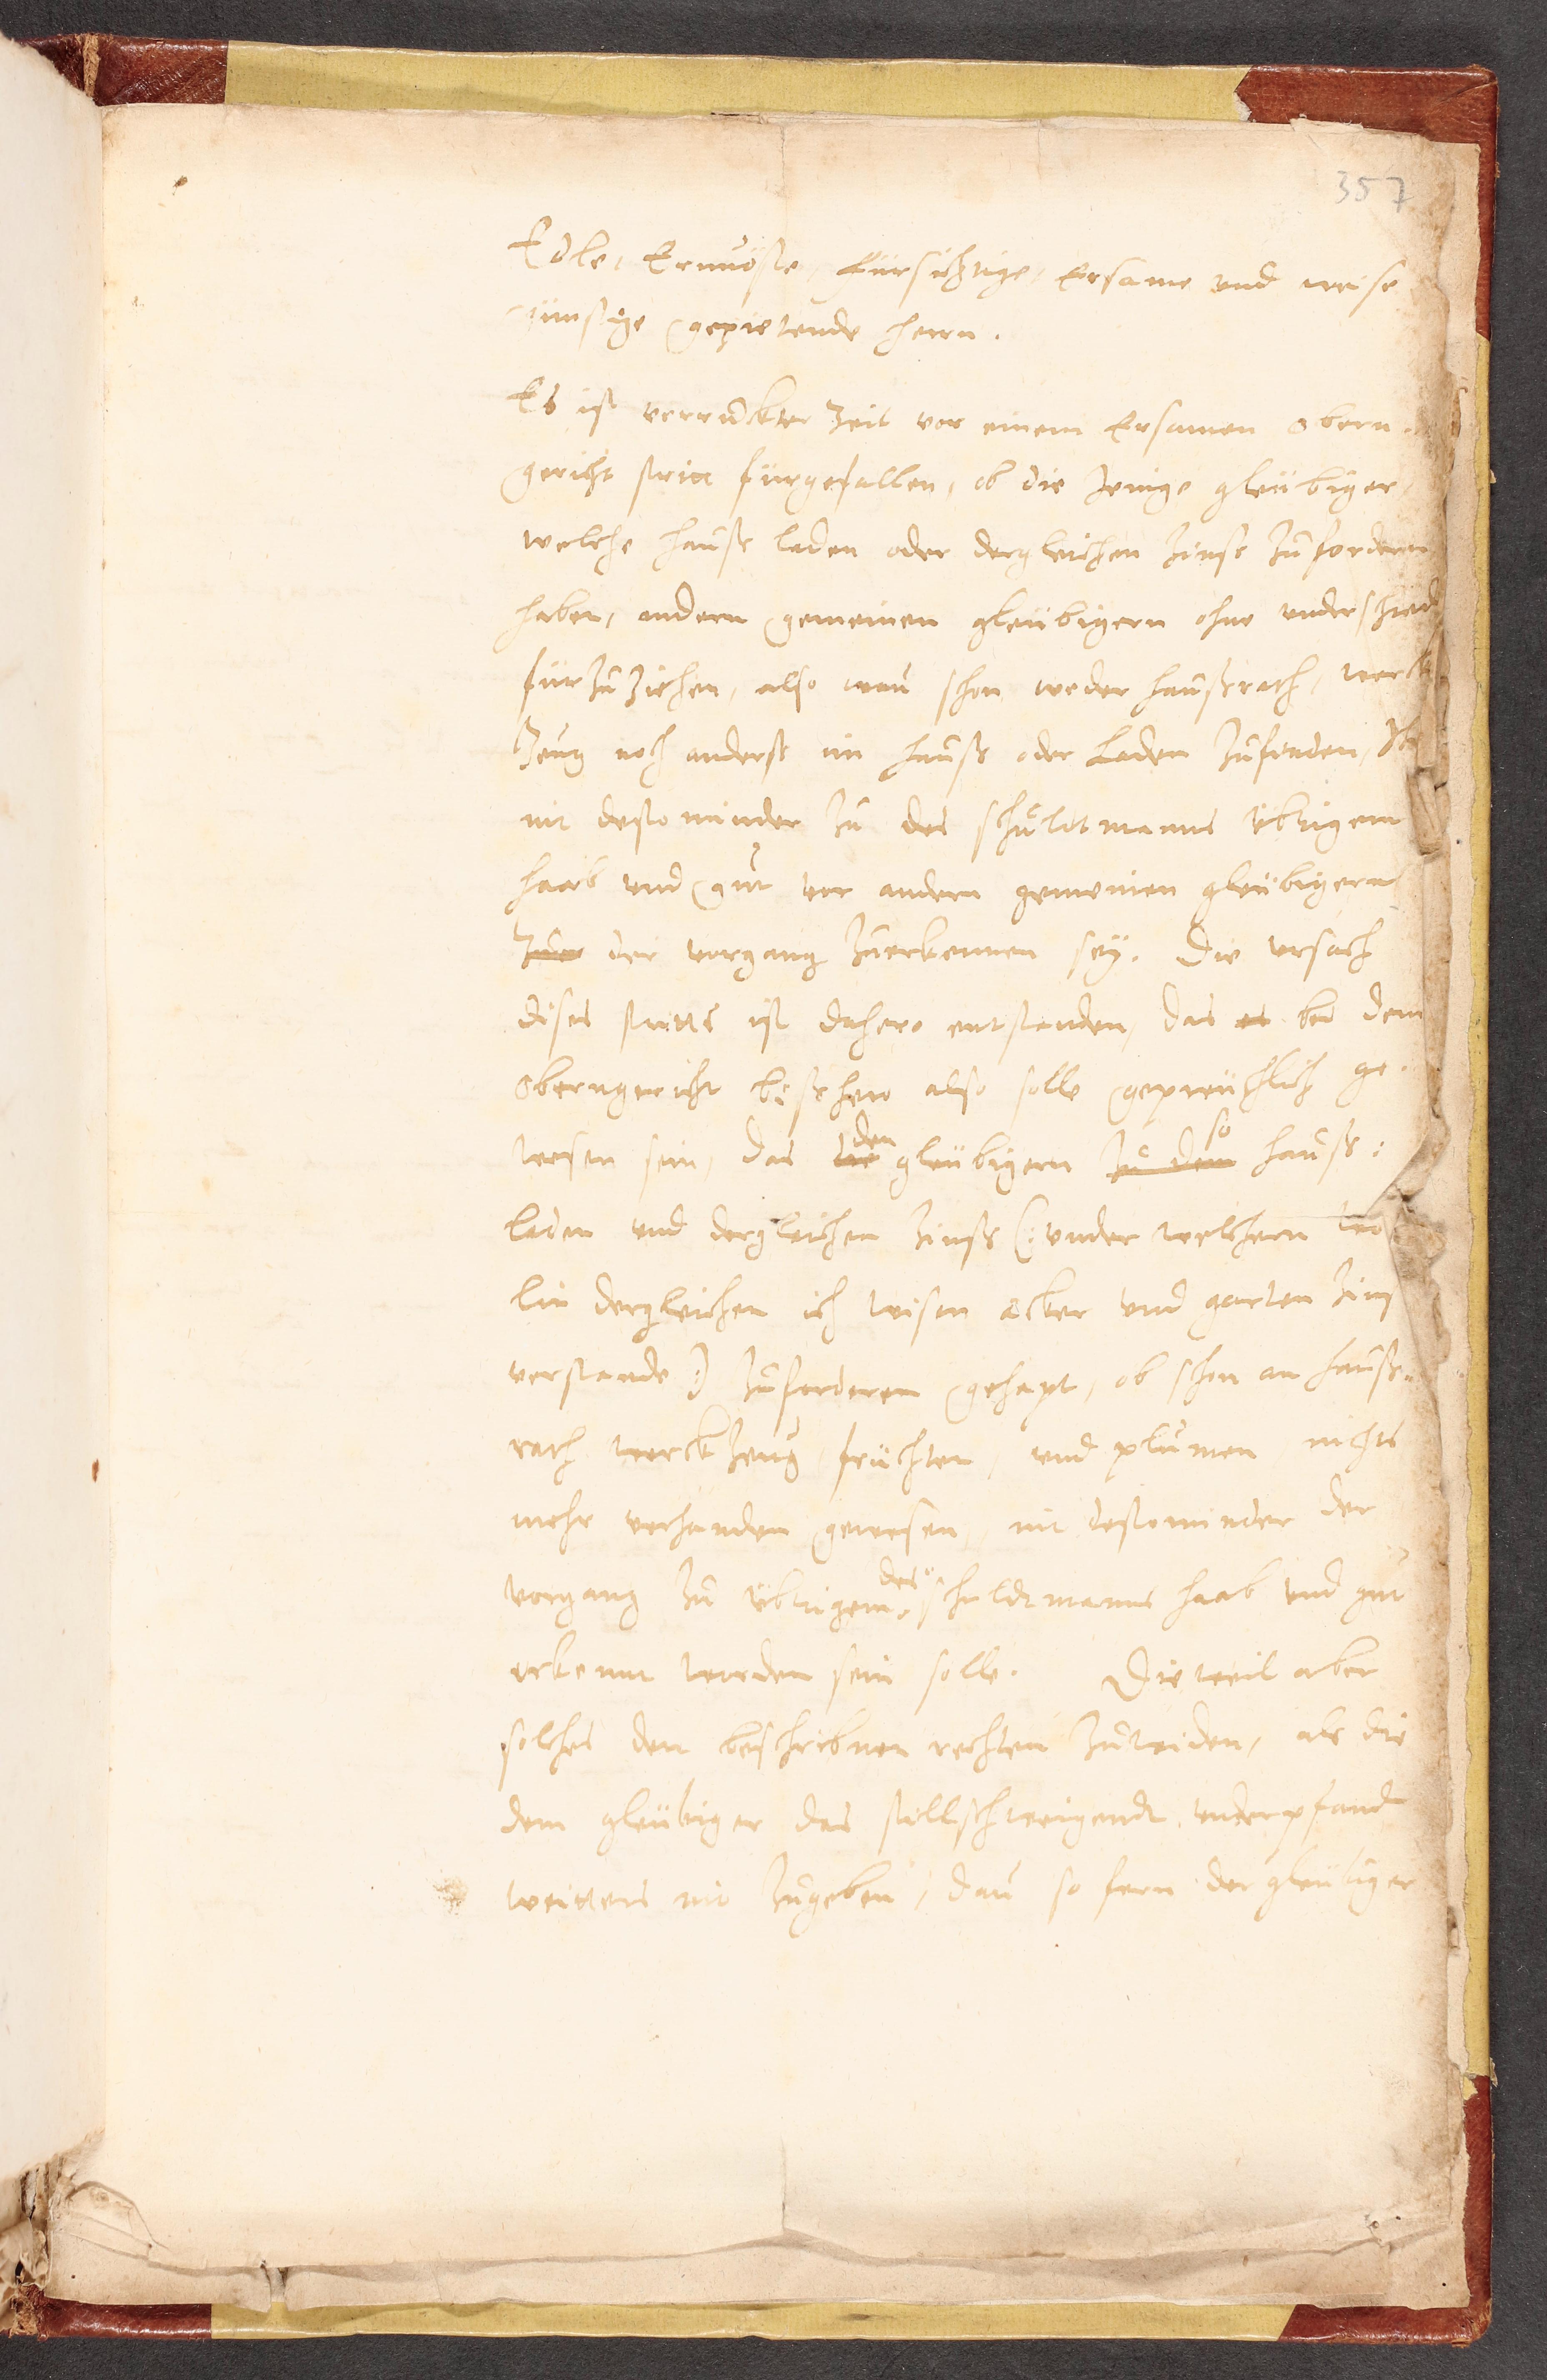 357
Edle, Ernvöste, fürsichtige, Ersame vnd weise
günstige gepietende Herrn.
Es ist verruckter Zeit vor einem Ersamen obern
gericht stritt fürgefallen, ob die Jenige gleübiger,
welche hauß laden oder dergleichen Zinß Zufordern
haben, andern gemeinen gleübigern ohne vnderschied
für Zu Ziehen, also wan schon weder haußrath, werck
Zeug noch anderß im hauß oder Laden Zufinden,
nit destominder Zu des schuldtmanns übrigem
haab vnd gut vor andern gemeinen gleübigern
der vorgang Zuerkennen sey. Die vrsach
dises stritts ist dahero entstanden, das es bei dem
oberngericht bißhero also solle gepreüchlich ge-
wesen sein, das die den gleübigern Zu dem so hauß:
laden vnd dergleichen Zinß (: vnder welchem wo
lin dergleichen ich wisen acker vnd garten Zins
verstande :) Zufordern gehapt, ob schon an hauß-
rath werckZeug, früchten, vnd plumen, nichts
mehr verhanden gewesen, nit destominder der
vorgang Zu übrigem des schuldtmanns haab vnd gut
erkennt worden sein solle. Dieweil aber
solches den beschribnen rechten Zuwiden, als die
dem gleübiger das stillschweigendt vnderpfand
weitters nit Zugeben, dan so fern der gleübiger